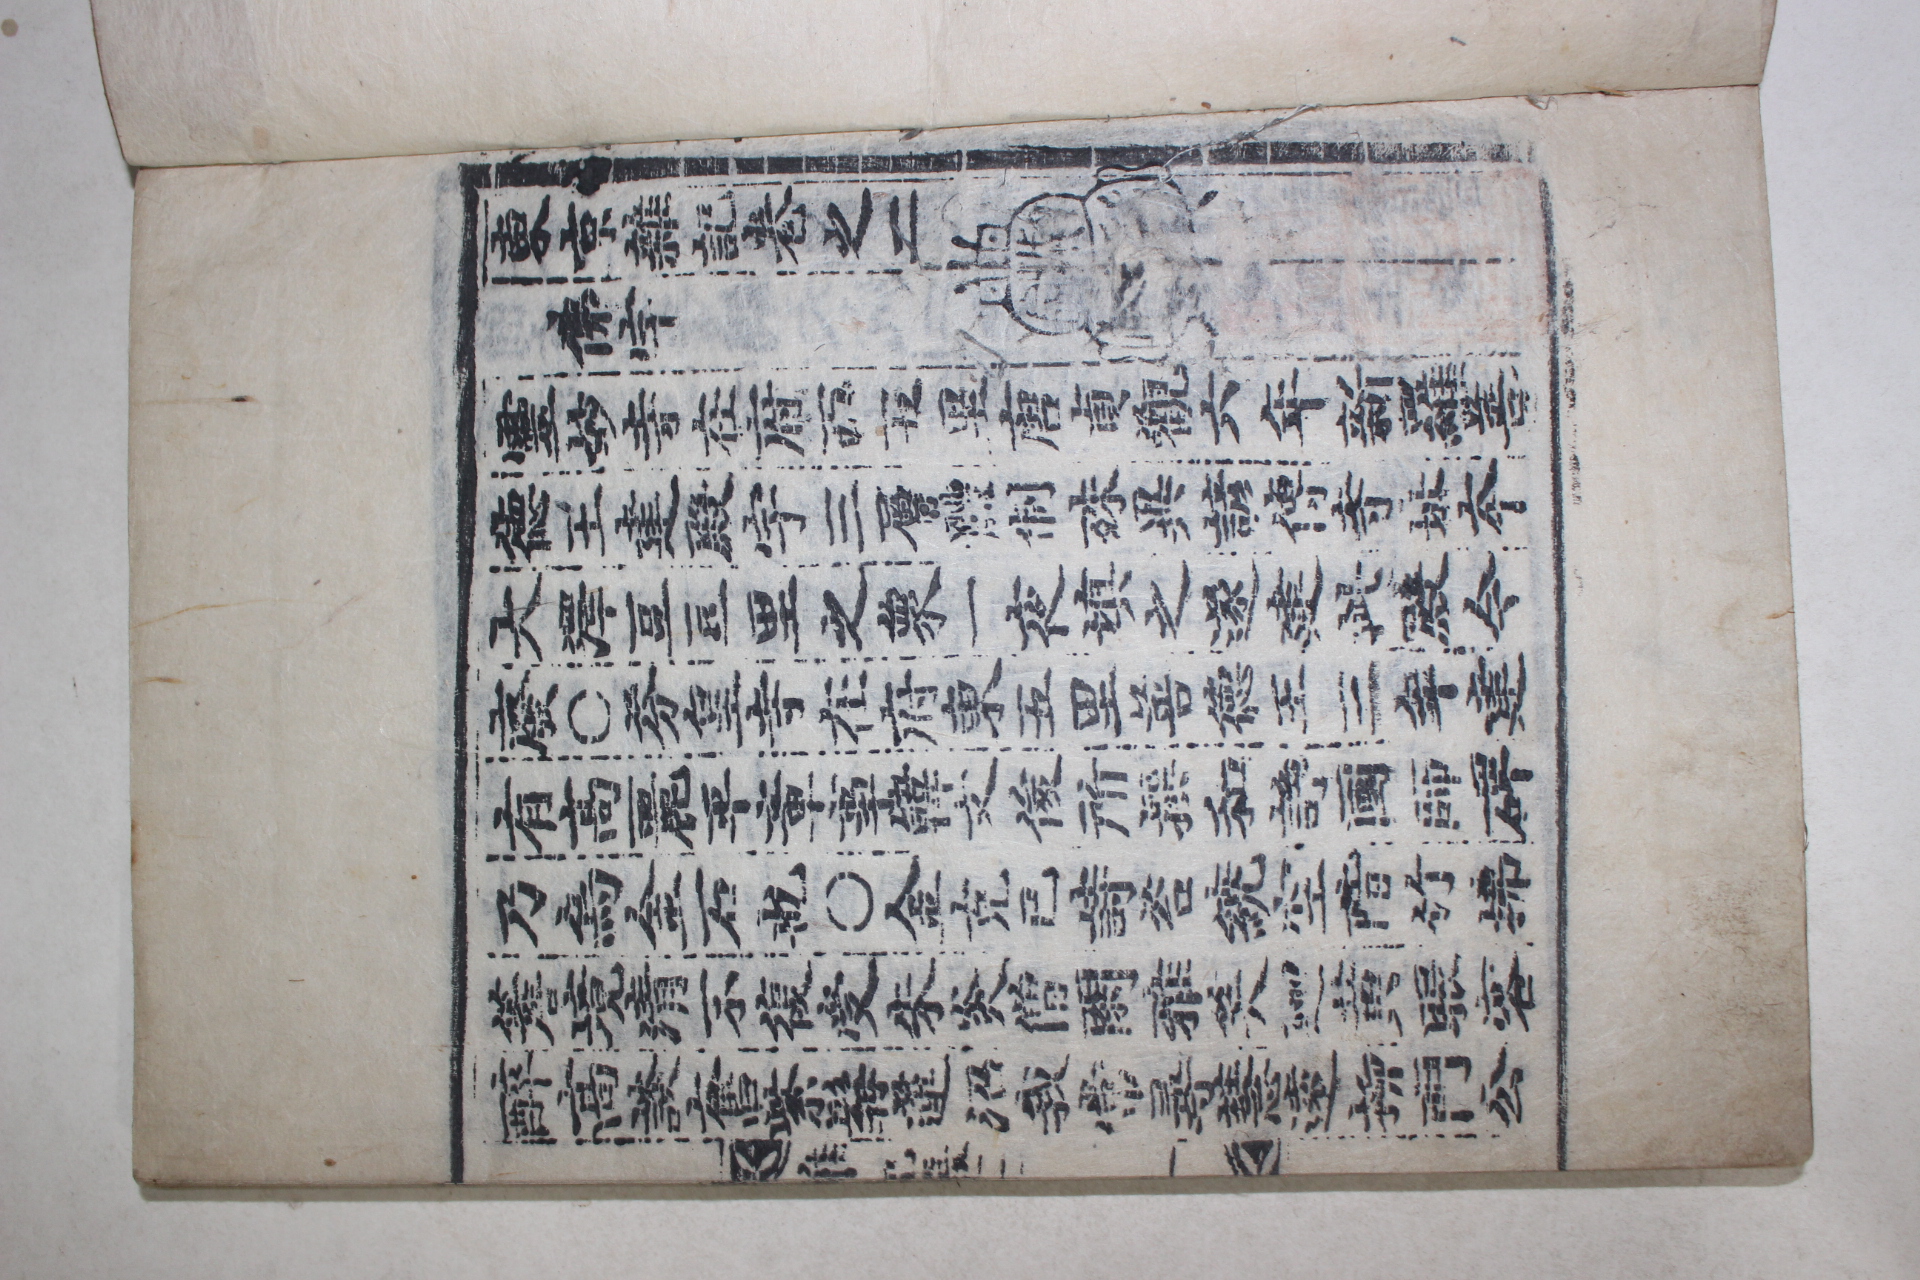 東京雜記卷之二
佛宇
靈妙寺在府西五里唐貞觀六年新羅善
德王建殿宇三層體制殊異諺傳寺址本
大澤豆豆里之衆一夜塡之遂建此殿今
廢○芬皇寺在府東五里善德王三年建
有高麗平章事韓文俊所撰和諍國師碑
乃烏金石也○金克己詩苔繞空階竹拂
簷境清不復受朱炎僧閑雅笑迎黃騩客
醉高談奮紫髥蓮沼我常尋慧遠掃門公
雜記卷二 一